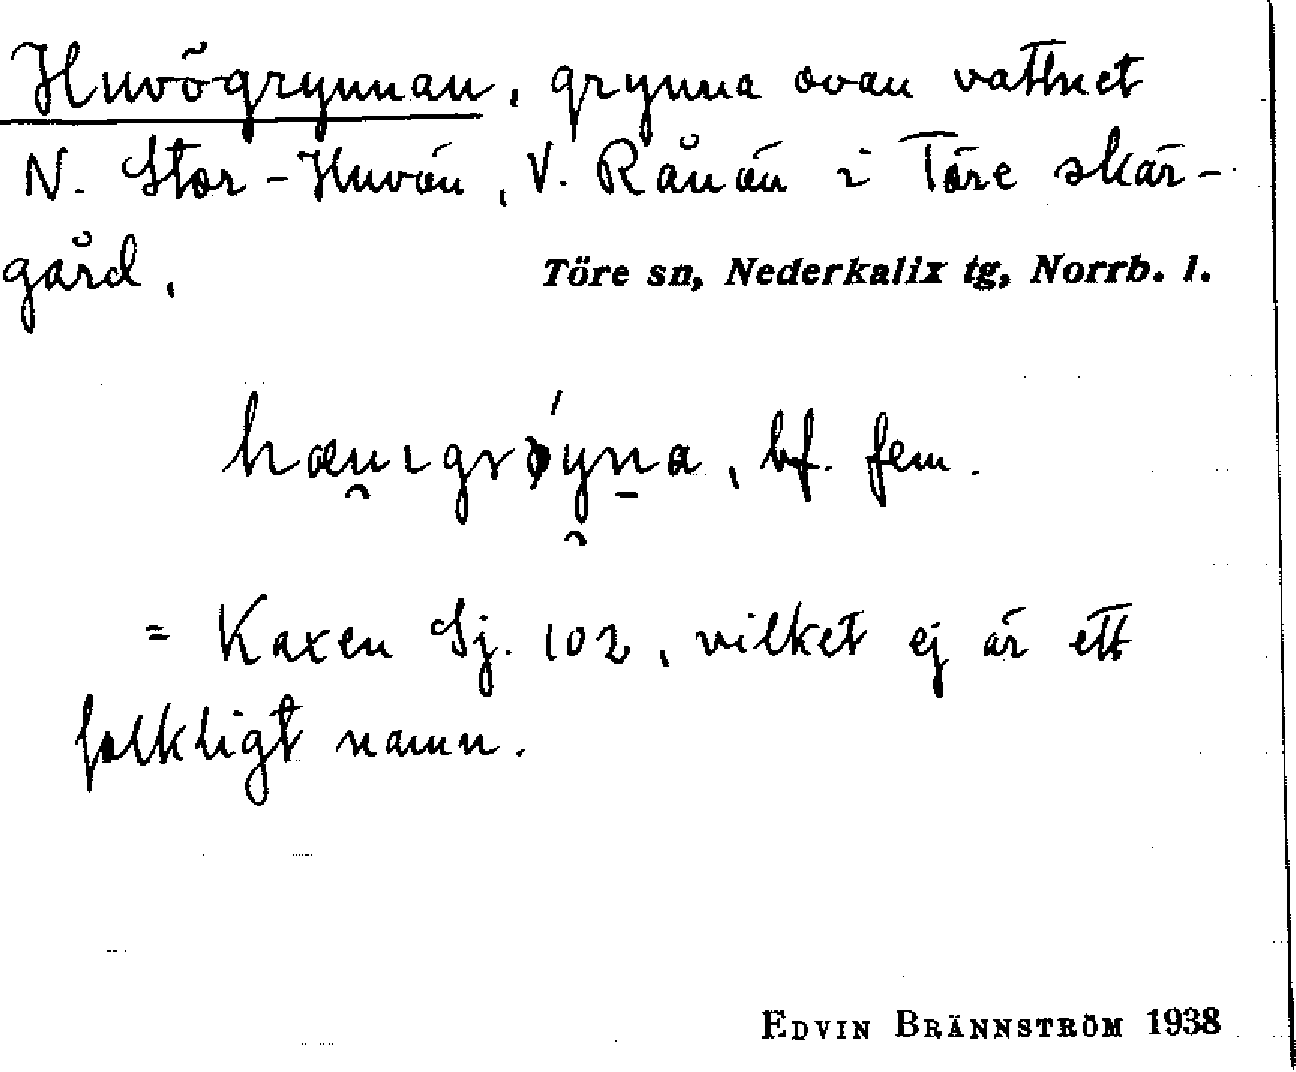 Huvögrynnan, grynna ovan vattnet
N. Stor-Huvön, V. Rånön i Töre skär-
gård.
Töre sn, Nederkalix tg, Norrb. l.
bf. fem.
= Kaxen Sj. 102, vilket ej är ett
folkligt namn.
EDVIN BRÄNNSTRÖM 1938